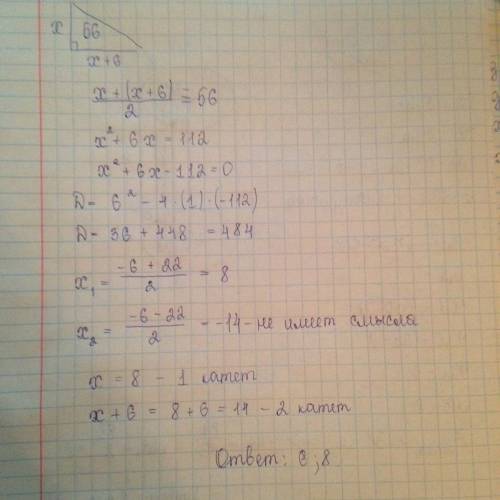 x 56
x+6
x + (x+6) / 2 = 56
x² + 6x = 112
x² + 6x - 112 = 0
D = 6² - 4·(1)·(-112)
D = 36 + 448 = 484
x₁ = (-6 + 22) / 2 = 8
x₂ = (-6 - 22) / 2 = -14 - не имеет смысла
x = 8 - 1 катет
x + 6 = 8 + 6 = 14 - 2 катет
Ответ: 6; 8